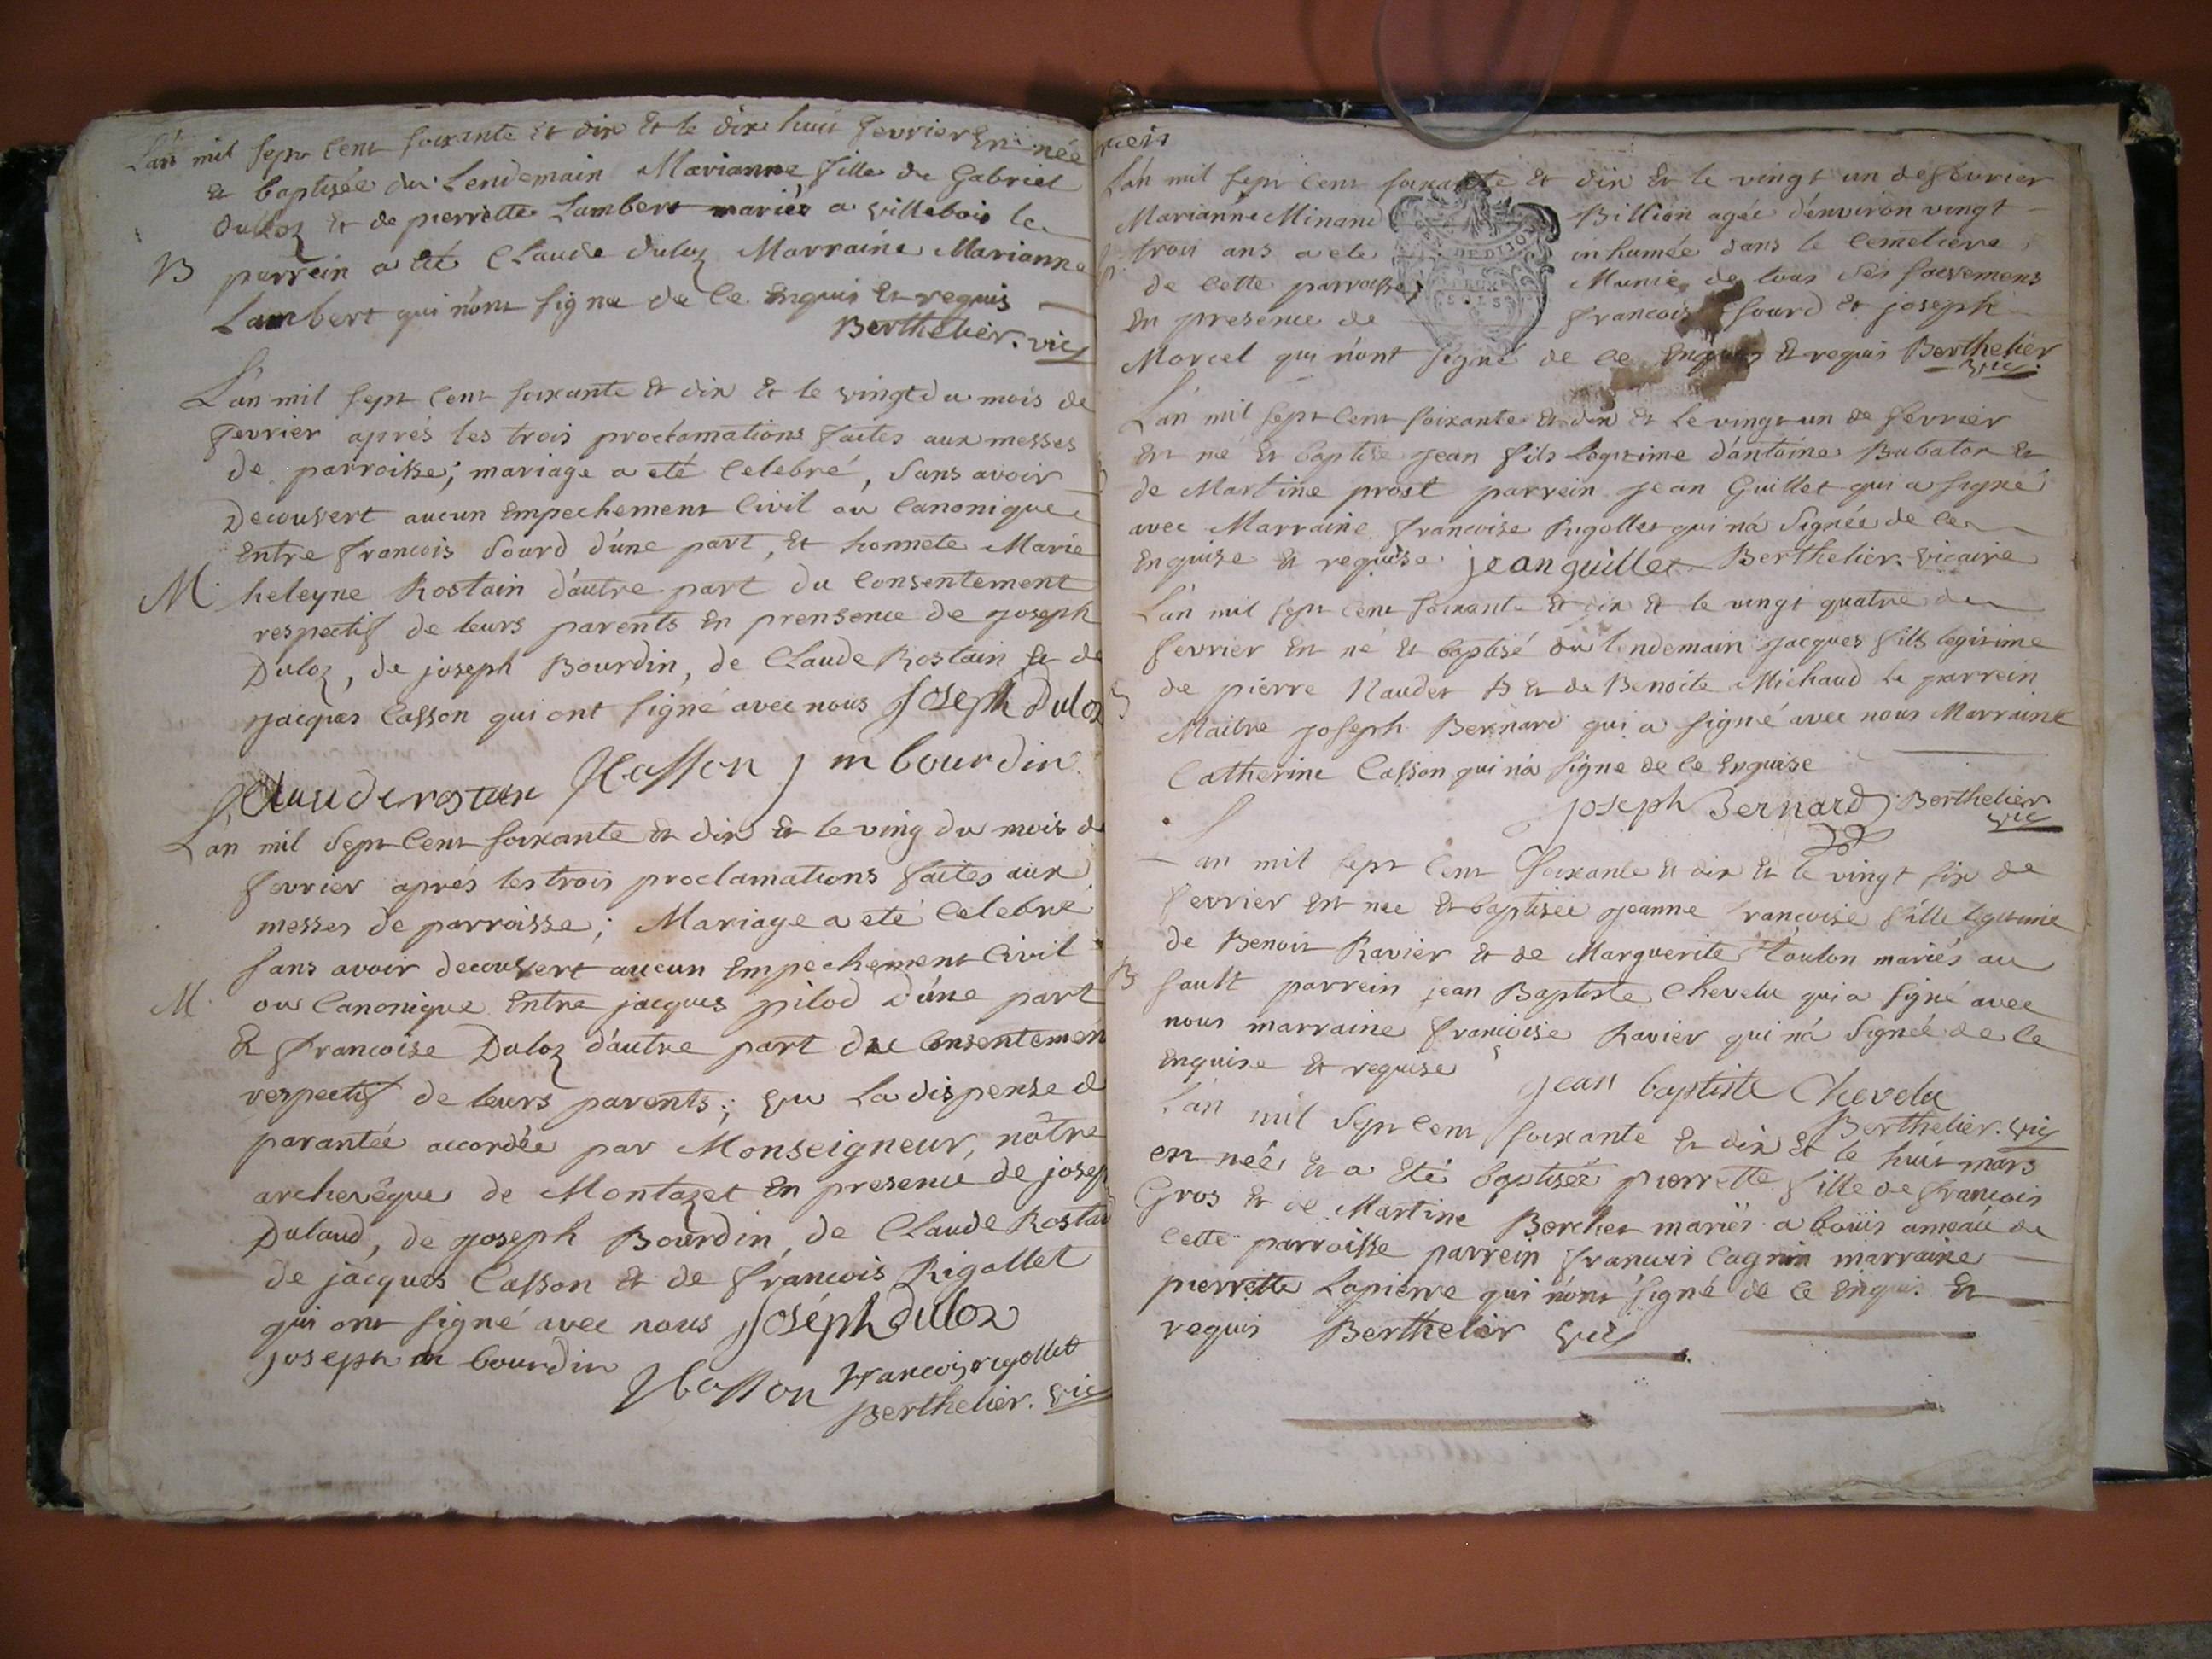 L'an mil sept cent soixante et dix et le dix huit fevrier est née
et baptisée du Lendemain Marianne fille de Gabriel
Duloz et de pierrette Lambert mariés a villebois le
B parrein a été Claude duloz Marraine Marianne
Lambert qui n'ont signé de ce enquis et requis
Berthelier. vic
L'an mil sept cent soixante et dix et le vingt du mois de
fevrier aprés les trois proclamations faites aux messes
de parroisse; mariage a eté Celebré, sans avoir
Decouvert aucun Empechement Civil ou Canonique
Entre francois Sourd d'une part, et honnete Marie
M heleyne Rostain d'autre part du Consentement
respectif de leurs parents en prensence de joseph
Duloz, de joseph Bourdin, de Claude Rostain et de
jacques Casson qui ont signé avec nous Joseph Duloz
Claude rostain JCasson J m bourdin
L'an mil Sept Cent soixante et dix et le ving du mois d
fevrier aprés les trois proclamations faites aux
messes de parroisse; Mariage a eté Celebre
sans avoir decouvert aucun Empechement Civil
M ou Canonique Entre jacques pilod d'une part
Et francoise Duloz d'autre part du Consentemen
respectif de leurs parents; vu La dispense d
parantée accordée par Monseigneur, nôtre
archevêque de Montazet en presence de josep
Dulaud, de joseph Bourdin, de Claude Rostai
de jacques Casson et de francois Rigollet
qui ont signé avec nous Joséph duloz
joseph m bourdin JCasson francois rigollet
Berthelier. vic
L'an mil sept cent soixante et dix et le vingt un de fevrier
Marianne Minand Billion agée d'environ vingt
trois ans a ete inhumée dans le Cemetiere
de Cette parroisse Munie de tous ses sacremens
En presence de francois Sourd et joseph
Morcel qui n'ont signé de ce Enquis et requis Berthelier
vic.
L'an mil sept cent soixante et dix et Le vingt un de fevrier
Est né et baptisé jean fils Legitime d'antoine Babaton et
de Martine prost parrein jean Guillet qui a signé
avec Marraine francoise Rigollet qui n'a Signée de ce
Enquise et requise jean guillet Berthelier. vicaire
L'an mil sept cent soixante et dix et le vingt quatre de
fevrier est né et baptisé du lendemain jacques fils legitime
de pierre Naudet B et de Benoite Michaud Le parrein
Maitre joseph Bernard qui a signé avec nous Marraine
Catherine Casson qui n'a signé de ce Enquise
joseph Bernard Berthelier
vic
L'an mil sept Cent soixante et dix et le vingt six de
fevrier est née et baptisée jeanne francoise fille legitime
de Benoit Ravier et de Marguerite Toulon mariés au
B sault parrein jean Baptiste Chevelu qui a signé avec
nous marraine francoise Ravier qui n'a Signée de ce
Enquise et requise jean baptiste Chevelu
Berthelier. vic
L'an mil Sept Cent soixante et dix et le huit mars
est née et a été baptisée pierrette fille de francois
Gros et de Martine Berchet mariés a boüis ameau de
Cette parroisse parrein francois Cagnin marraine
pierrette Lapierre qui n'ont signé de ce Enquis et
requis Berthelier vic